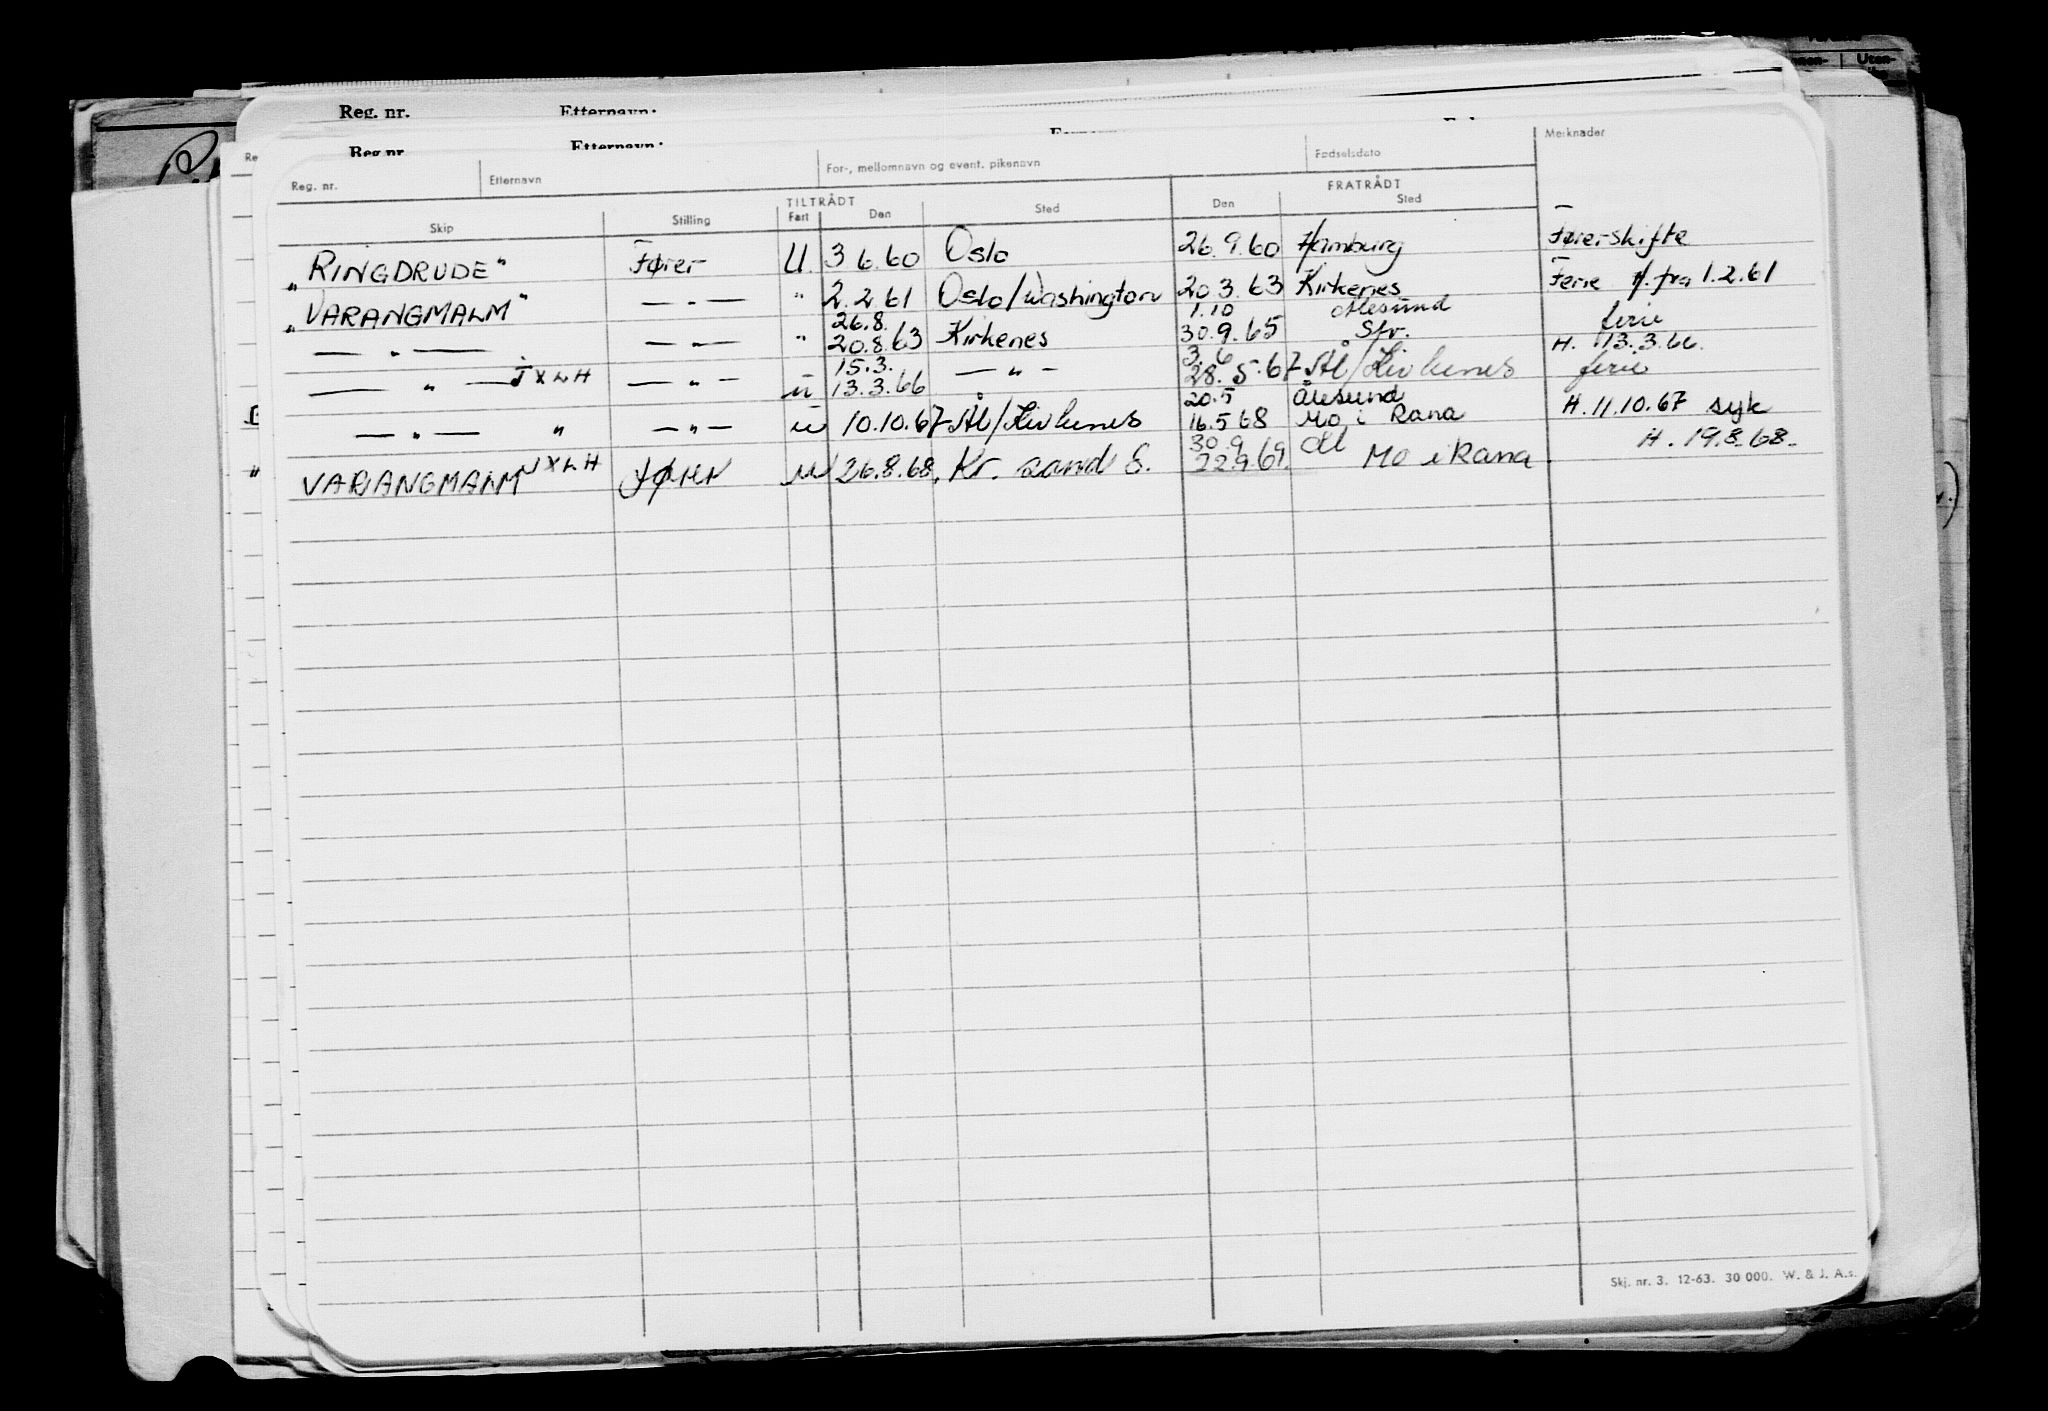 Reg. nr. Etternavn:
Reg. nr. Etternavn:
Reg. nr. Etternavn For-, mellomnavn og event. pikenavn Fødselsdato Merknader
TILTRÅDT FRATRÅDT
Skip Stilling Fart Den Sted Den Sted
"RINGDRUDE" Fører U. 3 6.60 Oslo 26.9.60 Hamburg Førerskifte
"VARANGMALM" — " — " 2.2.61 Oslo/Washington 20.3.63 Kirkenes Ferie fra 1.2.61
26.8. 1.10 Ålesund ferie
— " — — " — " 20.8.63 Kirkenes 30.9.65 H. 13.3.66.
15.3. 3.6
— " — JXLH — " — u 13.3.66 — " — 28.5.67 Ål/Kirkenes ferie
20.5 Ålesund
— " — " — " — u 10.10.67 Ål/Kirkenes 16.5 68 Mo i Rana H. 11.10.67 syk
30.9 H. 19.8.68.
VARANGMALM JXLH Fører u 26.8.68. Kr. sand S. 22.9.69. Mo i Rana
Skj. nr. 3. 12-63. 30 000. W. & J. A.s.